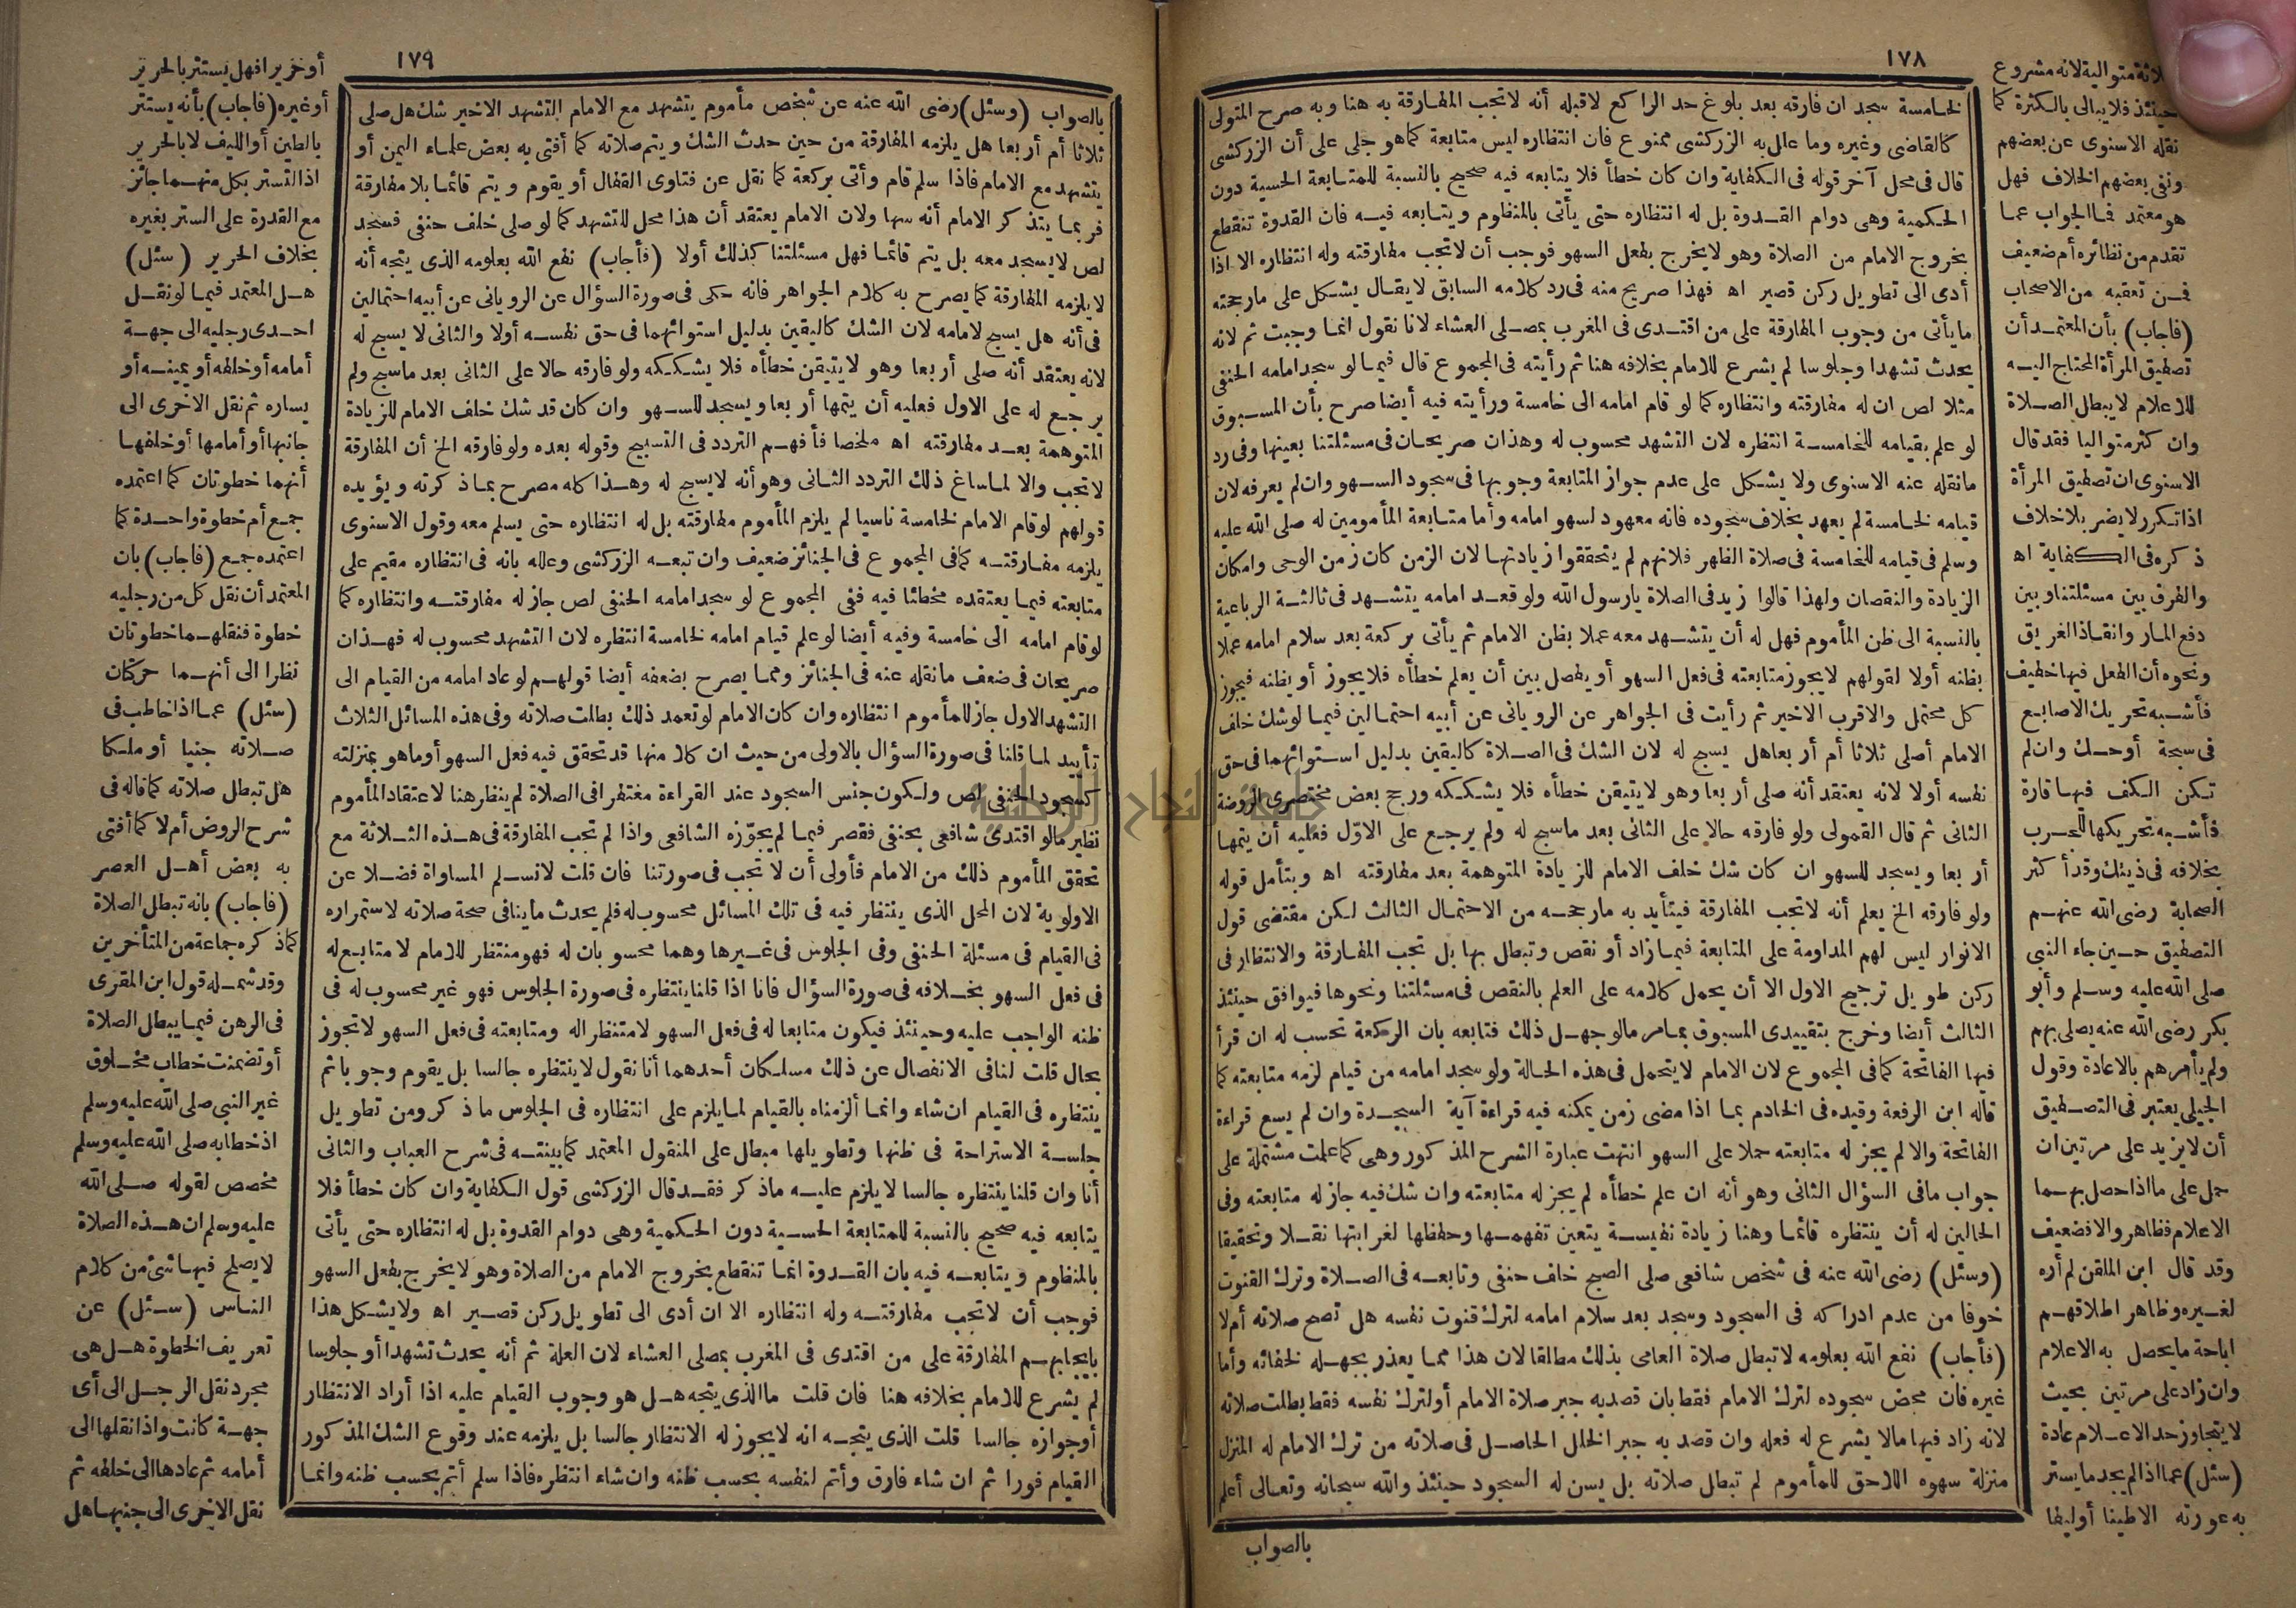 ١٧٨
لخامسة سجد ان فارقه بعد بلوغ حد الراكع لا قبله أنه لا تجب المفارقة به هنا وبه صرح المتولى
كالقاضى وغيره وما علل به الزركشى ممنوع فان انتظاره ليس متابعة كما هو جلى على أن الزركشى
قال فى محل آخر قوله فى الكفاية وان كان خطأ فلا يتابعه فيه صحيح بالنسبة للمتابعة الحسية دون
الحكمية وهى دوام القدوة بل له انتظاره حتى يأتى بالمنظوم ويتابعه فيه فان القدوة تنقطع
بخروج الامام من الصلاة وهو لا يخرج بفعل السهو فوجب أن لا تجب مفارقته وله انتظاره الا اذا
أدى الى تطويل ركن قصير اه فهذا صريح منه فى رد كلامه السابق لا يقال يشكل على ما رجحته
ما يأتى من وجوب المفارقة على من اقتدى فى المغرب بمصلى العشاء لانا نقول انما وجبت ثم لانه
يحدث تشهدا وجلوسا لم يشرع للامام بخلافه هنا ثم رأيته فى المجموع قال فيما لو سجد امامه الحنفى
مثلا لص ان له مفارقته وانتظاره كما لو قام امامه الى خامسة ورأيته فيه أيضا صرح بأن المسبوق
لو علم بقيامه للخامسة انتظره لان التشهد محسوب له وهذان صريحان فى مسئلتنا بعينها وفى رد
ما نقله عنه الاسنوى ولا يشكل على عدم جواز المتابعة وجوبها فى سجود السهو وان لم يعرفه لان
قيامه لخامسة لم يعهد بخلاف سجوده فانه معهود لسهو امامه وأما متابعة المأمومين له صلى الله عليه
وسلم فى قيامه للخامسة فى صلاة الظهر فلانهم لم يتحققوا زيادتها لان الزمن كان زمن الوحى وامكان
الزيادة والنقصان ولهذا قالوا زيد فى الصلاة يا رسول الله ولو قعد امامه يتشهد فى ثالثة الرباعية
بالنسبة الى ظن المأموم فهل له أن يتشهد معه عملا بظن الامام ثم يأتى بركعة بعد سلام امامه عملا
بظنه أولا لقولهم لا يجوز متابعته فى فعل السهو أو يفصل بين أن يعلم خطأه فلا يجوز أو يظنه فيجوز
كل محتمل والاقرب الاخير ثم رأيت فى الجواهر عن الرويانى عن أبيه احتمالين فيما لو شك خلف
الامام أصلى ثلاثا أم أربعا هل يسبح له لان الشك فى الصلاة كاليقين بدليل استوائهما فى حق
نفسه أولا لانه يعتقد أنه صلى أربعا وهو لا يتيقن خطأه فلا يشككه ورجح بعض مختصرى الروضة
الثانى ثم قال القمولى ولو فارقه حالا على الثانى بعد ما سبح له ولم يرجع على الاوّل فعليه أن يتمها
أربعا ويسجد للسهو ان كان شك خلف الامام للزيادة المتوهمة بعد مفارقته اه ويتأمل قوله
ولو فارقه الخ يعلم أنه لا تجب المفارقة فيتأيد به ما رجحه من الاحتمال الثالث لكن مقتضى قول
الانوار ليس لهم المداومة على المتابعة فيما زاد أو نقص وتبطل بها بل تجب المفارقة والانتظار فى
ركن طويل ترجيح الاول الا أن يحمل كلامه على العلم بالنقص فى مسئلتنا ونحوها فيوافق حينئذ
الثالث أيضا وخرج بتقييدى المسبوق بما مر ما لو جهل ذلك فتابعه بان الركعة تحسب له ان قرأ
فيها الفاتحة كما فى المجموع لان الامام لا يتحمل فى هذه الحالة ولو سجد امامه من قيام لزمه متابعته كما
قاله ابن الرفعة وقيده فى الخادم بما اذا مضى زمن يمكنه فيه قراءة آية السجدة وان لم يسع قراءة
الفاتحة والا لم يجز له متابعته حملا على السهو انتهت عبارة الشرح المذكور وهى كما علمت مشتملة على
جواب ما فى السؤال الثانى وهو أنه ان علم خطأه لم يجز له متابعته وان شك فيه جاز له متابعته وفى
الحالين له أن ينتظره قائما وهنا زيادة نفيسة يتعين تفهمها وحفظها لغرابتها نقلا وتحقيقا
(وسئل) رضى الله عنه فى شخص شافعى صلى الصبح خلف حنفى وتابعه فى الصلاة وترك القنوت
خوفا من عدم ادراكه فى السجود وسجد بعد سلام امامه لترك قنوت نفسه هل تصح صلاته أم لا
(فأجاب) نفع الله بعلومه لا تبطل صلاة العامى بذلك مطلقا لان هذا مما يعذر بجهله لخفائه وأما
غيره فان محض سجوده لترك الامام فقط بان قصد به جبر صلاة الامام أو لترك نفسه فقط بطلت صلاته
لانه زاد فيها ما لا يشرع له فعله وان قصد به جبر الخلل الحاصل فى صلاته من ترك الامام له المنزل
منزلة سهوه اللاحق للمأموم لم تبطل صلاته بل يسن له السجود حينئذ والله سبحانه وتعالى أعلم
بالصواب
متوالية لانه مشروع
حينئذ فلا يبالى بالكثرة كما
نقله الاسنوى عن بعضهم
ونفى بعضهم الخلاف فهل
هو معتمد فما الجواب عما
تقدم من نظائره أم ضعيف
فمن تعقبه من الاصحاب
(فاجاب) بأن المعتمد أن
تصفيق المرأة المحتاج اليه
للاعلام لا يبطل الصلاة
وان كثر متواليا فقد قال
الاسنوى ان تصفيق المرأة
اذا تكرر لا يضر بلا خلاف
ذكره فى الكفاية اه
والفرق بين مسئلتنا وبين
دفع المار وانقاذ الغريق
ونحوه أن الفعل فيها خفيف
فأشبه تحريك الاصابع
فى سبحة أو حك وان لم
تكن الكف فيها قارة
فأشبه تحريكها للجرب
بخلافه فى ذينك وقد أكثر
الصحابة رضى الله عنهم
التصفيق حين جاء النبى
صلى الله عليه وسلم وأبو
بكر رضى الله عنه يصلى بهم
ولم يأمرهم بالاعادة وقول
الجيلى يعتبر فى التصفيق
أن لا يزيد على مرتين ان
حمل على ما اذا حصل بهما
الاعلام فظاهر والا فضعيف
وقد قال ابن الملقن لم أره
لغيره وظاهر اطلاقهم
اباحة ما يحصل به الاعلام
وان زاد على مرتين بحيث
لا يتجاوز حد الاعلام عادة
(سئل) عما اذا لم يجد ما يستر
به عورته الا طينا أو ليفا
١٧٩
بالصواب (وسئل) رضى الله عنه عن شخص مأموم يتشهد مع الامام التشهد الاخير شك هل صلى
ثلاثا أم أربعا هل يلزمه المفارقة من حين حدث الشك ويتم صلاته كما أفتى به بعض علماء اليمن أو
يتشهد مع الامام فاذا سلم قام وأتى بركعة كما نقل عن فتاوى القفال أو يقوم ويتم قائما بلا مفارقة
فربما يتذكر الامام أنه سها ولان الامام يعتقد أن هذا محل للتشهد كما لو صلى خلف حنفى فسجد
لص لا يسجد معه بل يتم قائما فهل مسئلتنا كذلك أولا (فأجاب) نفع الله بعلومه الذى يتجه أنه
لا يلزمه المفارقة كما يصرح به كلام الجواهر فانه حكى فى صورة السؤال عن الرويانى عن أبيه احتمالين
فى أنه هل يسبح لامامه لان الشك كاليقين بدليل استوائهما فى حق نفسه أولا والثانى لا يسبح له
لانه يعتقد أنه صلى أربعا وهو لا يتيقن خطأه فلا يشككه ولو فارقه حالا على الثانى بعد ما سبح ولم
يرجع له على الاول فعليه أن يتمها أربعا ويسجد للسهو وان كان قد شك خلف الامام للزيادة
المتوهمة بعد مفارقته اه ملخصا فأفهم التردد فى التسبيح وقوله بعده ولو فارقه الخ أن المفارقة
لا تجب والا لما ساغ ذلك التردد الثانى وهو أنه لا يسبح له وهذا كله مصرح بما ذكرته ويؤيده
قولهم لو قام الامام لخامسة ناسيا لم يلزم المأموم مفارقته بل له انتظاره حتى يسلم معه وقول الاسنوى
يلزمه مفارقته كما فى المجموع فى الجنائز ضعيف وان تبعه الزركشى وعلله بانه فى انتظاره مقيم على
متابعته فيما يعتقده مخطئا فيه ففى المجموع لو سجد امامه الحنفى لص جاز له مفارقته وانتظاره كما
لو قام امامه الى خامسة وفيه أيضا لو علم قيام امامه لخامسة انتظره لان التشهد محسوب له فهذان
صريحان فى ضعف ما نقله عنه فى الجنائز ومما يصرح بضعفه أيضا قولهم لو عاد امامه من القيام الى
التشهد الاول جاز للمأموم انتظاره وان كان الامام لو تعمد ذلك بطلت صلاته وفى هذه المسائل الثلاث
تأييد لما قلنا فى صورة السؤال بالاولى من حيث ان كلا منها قد تحقق فيه فعل السهو أو ما هو بمنزلته
كسجود الحنفى لص ولكون جنس السجود عند القراءة مغتفرا فى الصلاة لم ينظر هنا لاعتقاد المأموم
نظير ما لو اقتدى شافعى بحنفى فقصر فيما لم يجوّزه الشافعى واذا لم تجب المفارقة فى هذه الثلاثة مع
تحقق المأموم ذلك من الامام فأولى أن لا تجب فى صورتنا فان قلت لا نسلم المساواة فضلا عن
الاولوية لان المحل الذى ينتظر فيه فى تلك المسائل محسوب له فلم يحدث ما ينافى صحة صلاته لاستمراره
فى القيام فى مسئلة الحنفى وفى الجلوس فى غيرها وهما محسوبان له فهو منتظر للامام لا متابع له
فى فعل السهو بخلافه فى صورة السؤال فانا اذا قلنا ينتظره فى صورة الجلوس فهو غير محسوب له فى
ظنه الواجب عليه وحينئذ فيكون متابعا له فى فعل السهو لا منتظرا له ومتابعته فى فعل السهو لا تجوز
بحال قلت لنا فى الانفصال عن ذلك مسلكان أحدهما أنا نقول لا ينتظره جالسا بل يقوم وجوبا ثم
ينتظره فى القيام ان شاء وانما ألزمناه بالقيام لما يلزم على انتظاره فى الجلوس ما ذكر ومن تطويل
جلسة الاستراحة فى ظنها وتطويلها مبطل على المنقول المعتمد كما بينته فى شرح العباب والثانى
أنا وان قلنا ينتظره جالسا لا يلزم عليه ما ذكر فقد قال الزركشى قول الكفاية وان كان خطأ فلا
يتابعه فيه صحيح بالنسبة للمتابعة الحسية دون الحكمية وهى دوام القدوة بل له انتظاره حتى يأتى
بالمنظوم ويتابعه فيه بان القدوة انما تنقطع بخروج الامام من الصلاة وهو لا يخرج بفعل السهو
فوجب أن لا تجب مفارقته وله انتظاره الا ان أدى الى تطويل ركن قصير اه ولا يشكل هذا
بايجابهم المفارقة على من اقتدى فى المغرب بمصلى العشاء لان العلة ثم أنه يحدث تشهدا أو جلوسا
لم يشرع للامام بخلافه هنا فان قلت ما الذى يتجه هل هو وجوب القيام عليه اذا أراد الانتظار
أو جوازه جالسا قلت الذى يتجه انه لا يجوز له الانتظار جالسا بل يلزمه عند وقوع الشك المذكور
القيام فورا ثم ان شاء فارق وأتم لنفسه بحسب ظنه وان شاء انتظره فاذا سلم أتم بحسب ظنه وانما
أو خز يرا فهل يستتر بالحرير
أو غيره (فاجاب) بأنه يستتر
بالطين أو الليف لا بالحرير
اذ التستر بكل منهما جائز
مع القدرة على الستر بغيره
بخلاف الحرير (سئل)
هل المعتمد فيما لو نقل
احدى رجليه الى جهة
أمامه أو خلفه أو يمينه أو
يساره ثم نقل الاخرى الى
جانبها أو أمامها أو خلفها
أنهما خطوتان كما اعتمده
جمع أم خطوة واحدة كما
اعتمده جمع (فاجاب) بان
المعتمد أن نقل كل من رجليه
خطوة فنقلهما خطوتان
نظرا الى أنهما حركتان
(سئل) عما اذا خاطب فى
صلاته جنيا أو ملكا
هل تبطل صلاته كما قاله فى
شرح الروض أم لا كما أفتى
به بعض أهل العصر
(فاجاب) بانه تبطل الصلاة
كما ذكره جماعة من المتأخرين
وقد شمله قول ابن المقرى
فى الرهن فيما يبطل الصلاة
أو تضمنت خطاب مخلوق
غير النبى صلى الله عليه وسلم
اذ خطابه صلى الله عليه وسلم
مخصص لقوله صلى الله
عليه وسلم ان هذه الصلاة
لا يصلح فيها شئ من كلام
الناس (سئل) عن
تعريف الخطوة هل هى
مجرد نقل الرجل الى أى
جهة كانت واذا نقلها الى
أمامه ثم عادها الى خلفه ثم
نقل الاخرى الى جنبها هل
جامعة النجاح الوطنية